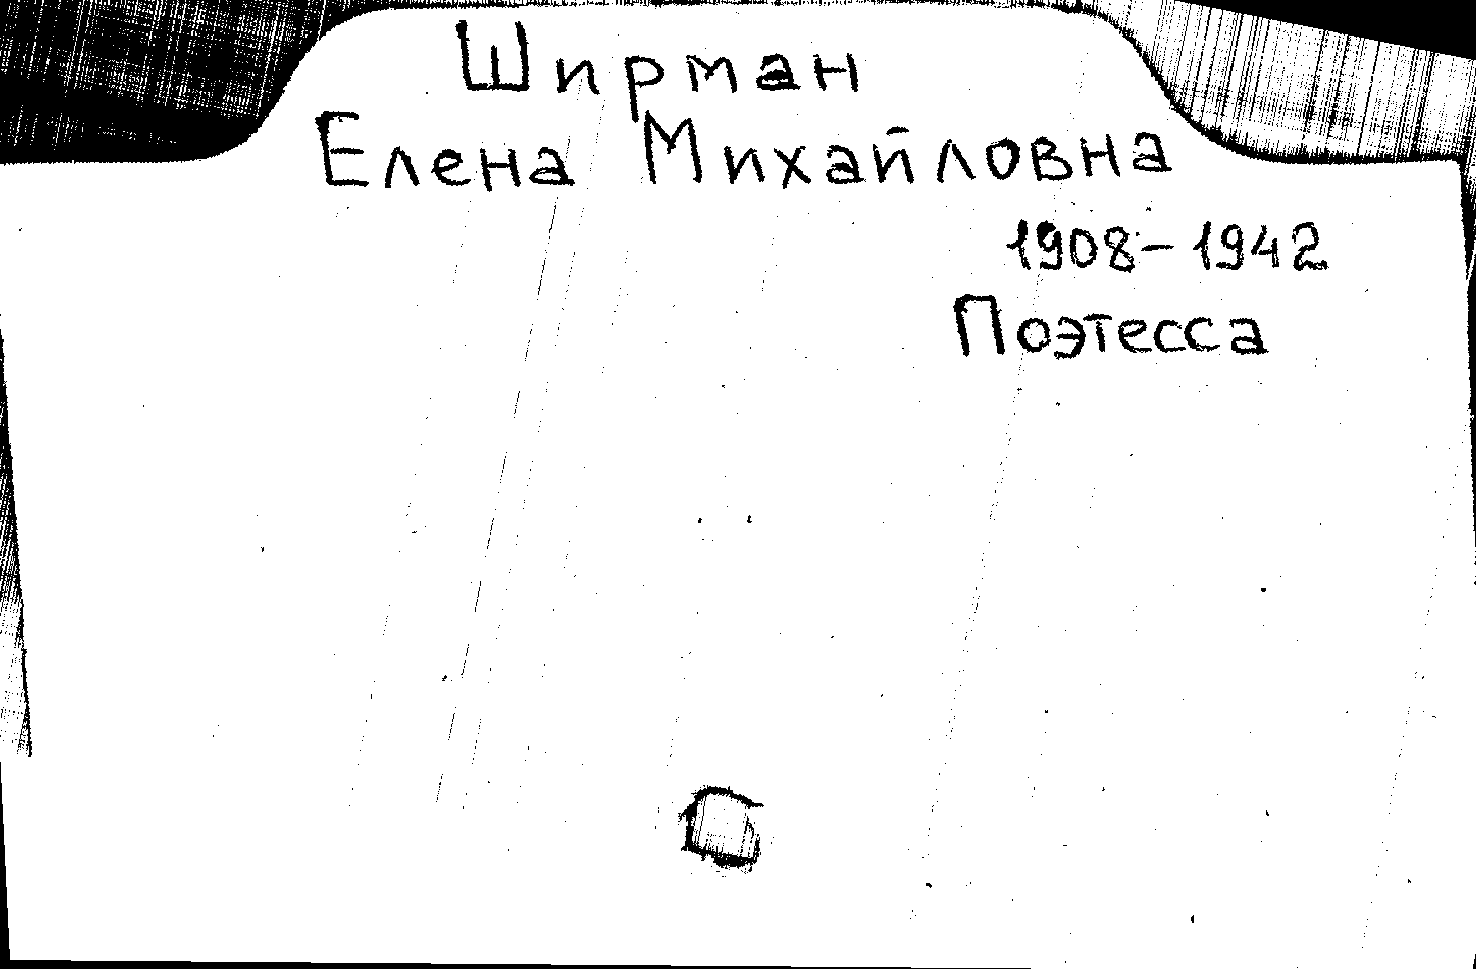 Ширман
Елена Михайловна
1908-1942
Поэтесса